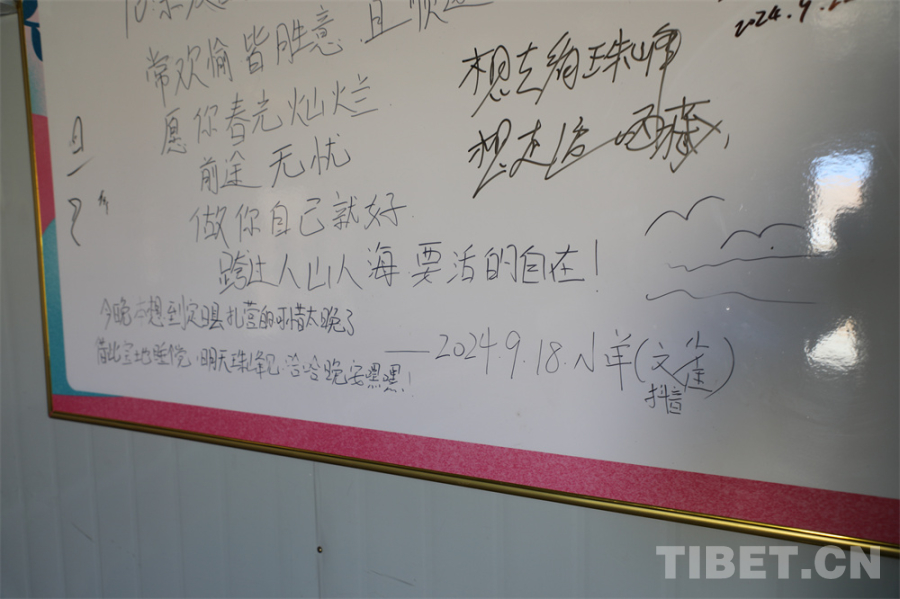 常欢愉皆胜意 且顺遂
愿你春光灿烂
前途无忧
做你自己就好
跨过人山人海 要活的自在!
今晚本想到定日县扎营的可惜太晚了
借此宝地睡觉,明天珠峰见.哈哈晚安嘿嘿!
——2024.9.18.小羊(文鱼)
抖音
2024.9.22
想去珠峰
想走
TIBET.CN